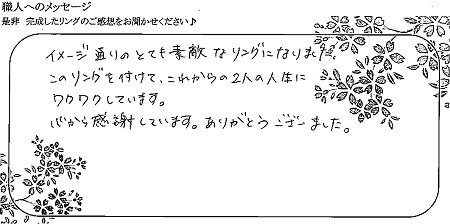 職人へのメッセージ
是非 完成したリングのご感想をお聞かせください♪
イメージ通りのとても素敵なリングになりました。
このリングを付けて、これからの2人の人生に
ワクワクしています。
心から感謝しています。ありがとうございました。